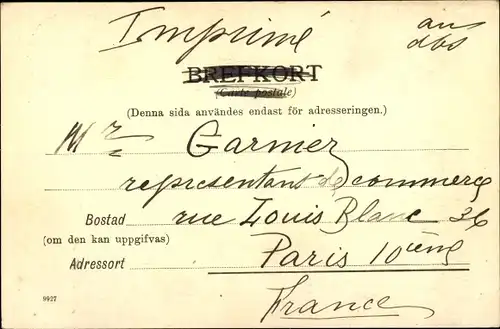 Imprimé
BREFKORT
(Carte postale)
(Denna sida användes endast för adresseringen.)
Mr Garnier
representant de commerce
Bostad rue Louis Blanc 36
(om den kan uppgifvas)
Adressort Paris 10ème
9927
France